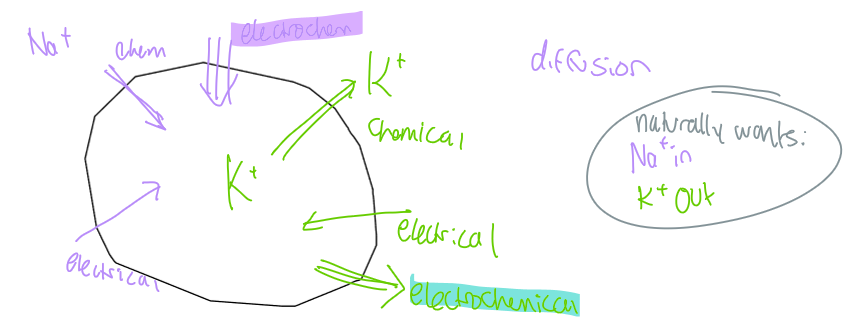 Na+
chem
electrochem
K+
chemical
K+
electrical
electrical
electrochemical
diffusion
naturally wants:
Na+ in
K+ out